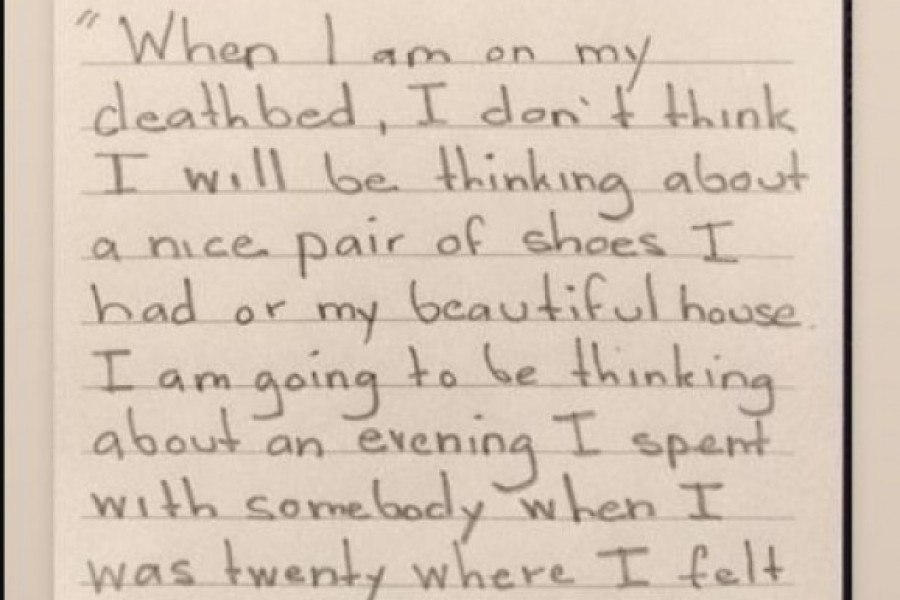 "When I am on my
deathbed, I don't think
I will be thinking about
a nice pair of shoes I
had or my beautiful house.
I am going to be thinking
about an evening I spent
with somebody when I
was twenty where I felt